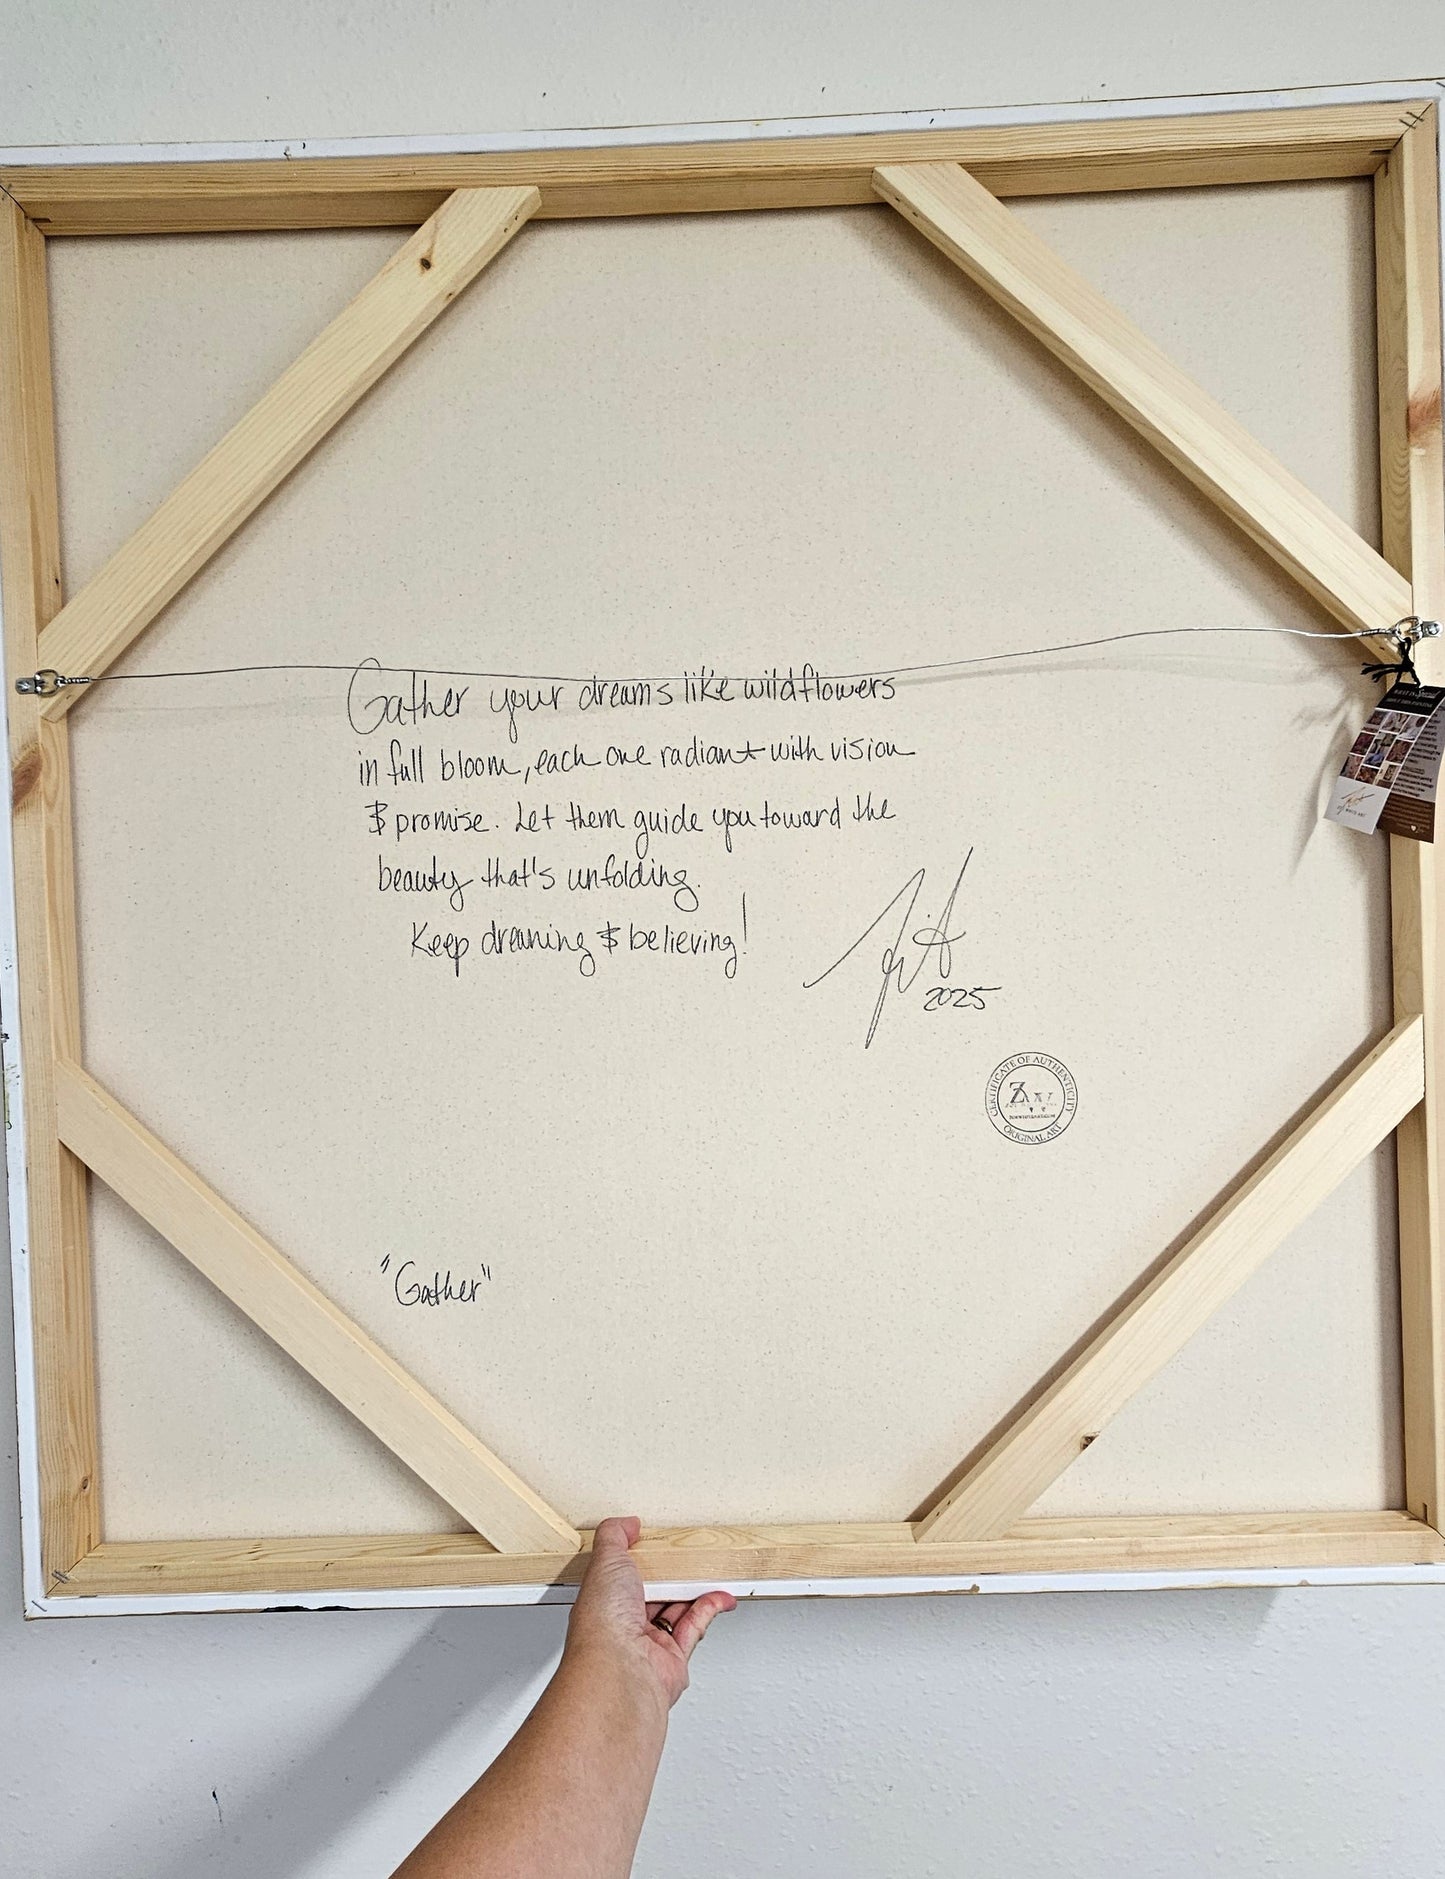 Gather your dreams like wildflowers
in full bloom, each one radiant with vision
& promise. Let them guide you toward the
beauty that's unfolding.
Keep dreaming & believing!
2025
CERTIFICATE OF AUTHENTICITY
ORIGINAL ART
"Gather"